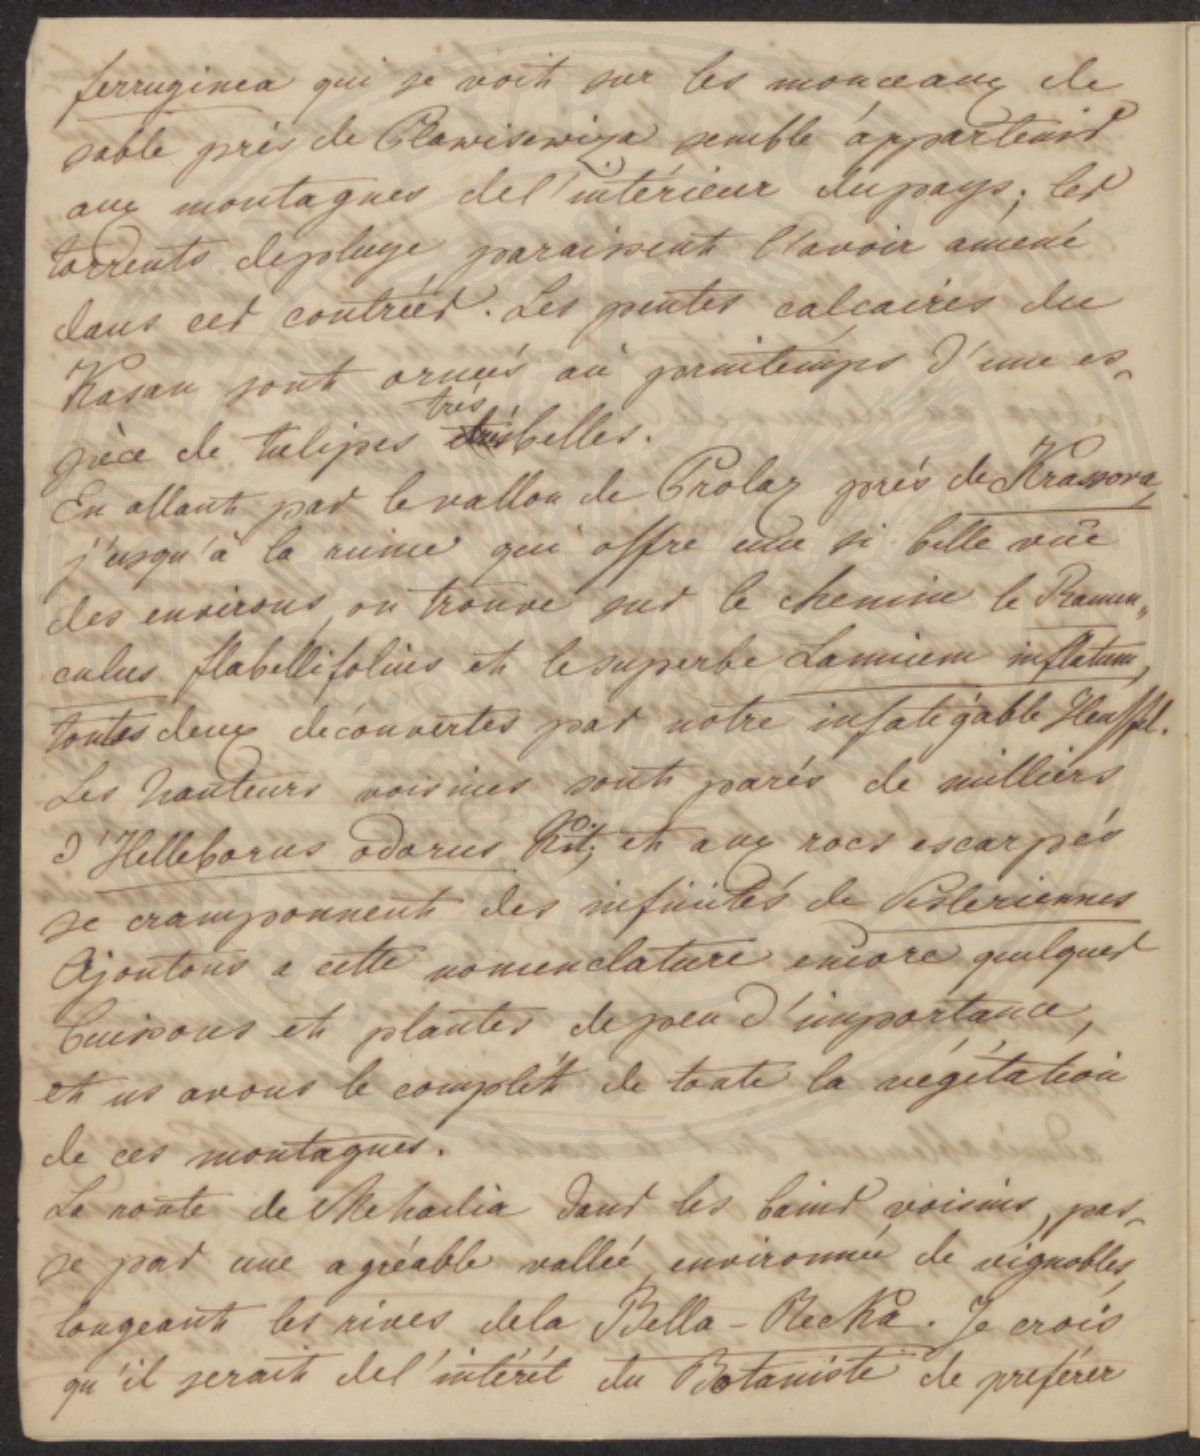 ferruginea qui se voit sur les monceaux de
sable près de Plawisewiza semble appartenir
aux montagnes del'intérieur dupays; les
torrents depluye paraissent l'avoir amené
dans ces contrées. Les pentes calcaires du
Kasan sont ornées au printemps d'une es-
pèce de tulipes très belles.
En allant par levallon de Prolaz près de Krassova,
j'usqu'à la ruine qui offre une si belle vûe
des environs, on trouve sur le chemin le Ranun„
culus flabellifolius et lesuperbe Lamium inflatum,
toutes deux découvertes par notre infatigable Heuffel.
Les hauteurs voisines sont parés de milliers
d'Helleborus odorus Kit; et aux rocs escarpés
se cramponnent des infinités de Pesleriennes
Ajoutons a cette nomenclature encore quelques
buissons et plantes depeu d'importance,
et ns avons le complêt de toute la végétation
de ces montagnes.
La route de Mehadia dans les bains voisins, pas-
se par une agréable vallée, environnée de vignobles,
longeant les rives dela Bella-Recka. Je crois
qu'il serait del'intérêt du Botaniste de preférer